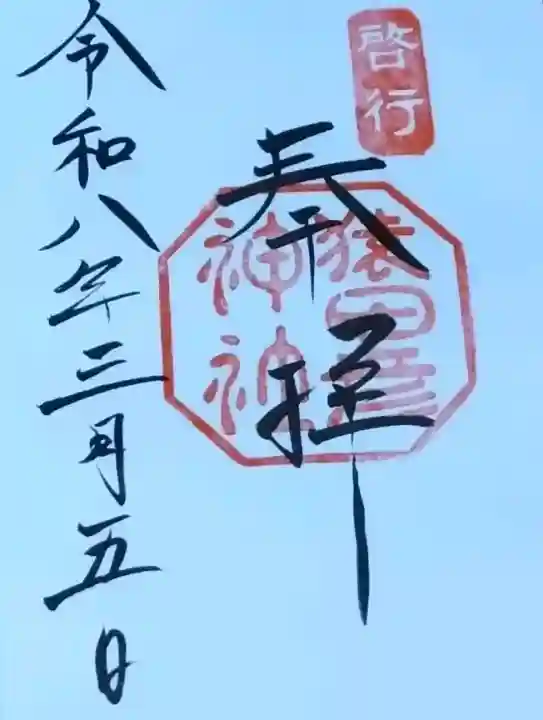 啓行
奉拝
猿田彦
神社
令和八年三月五日